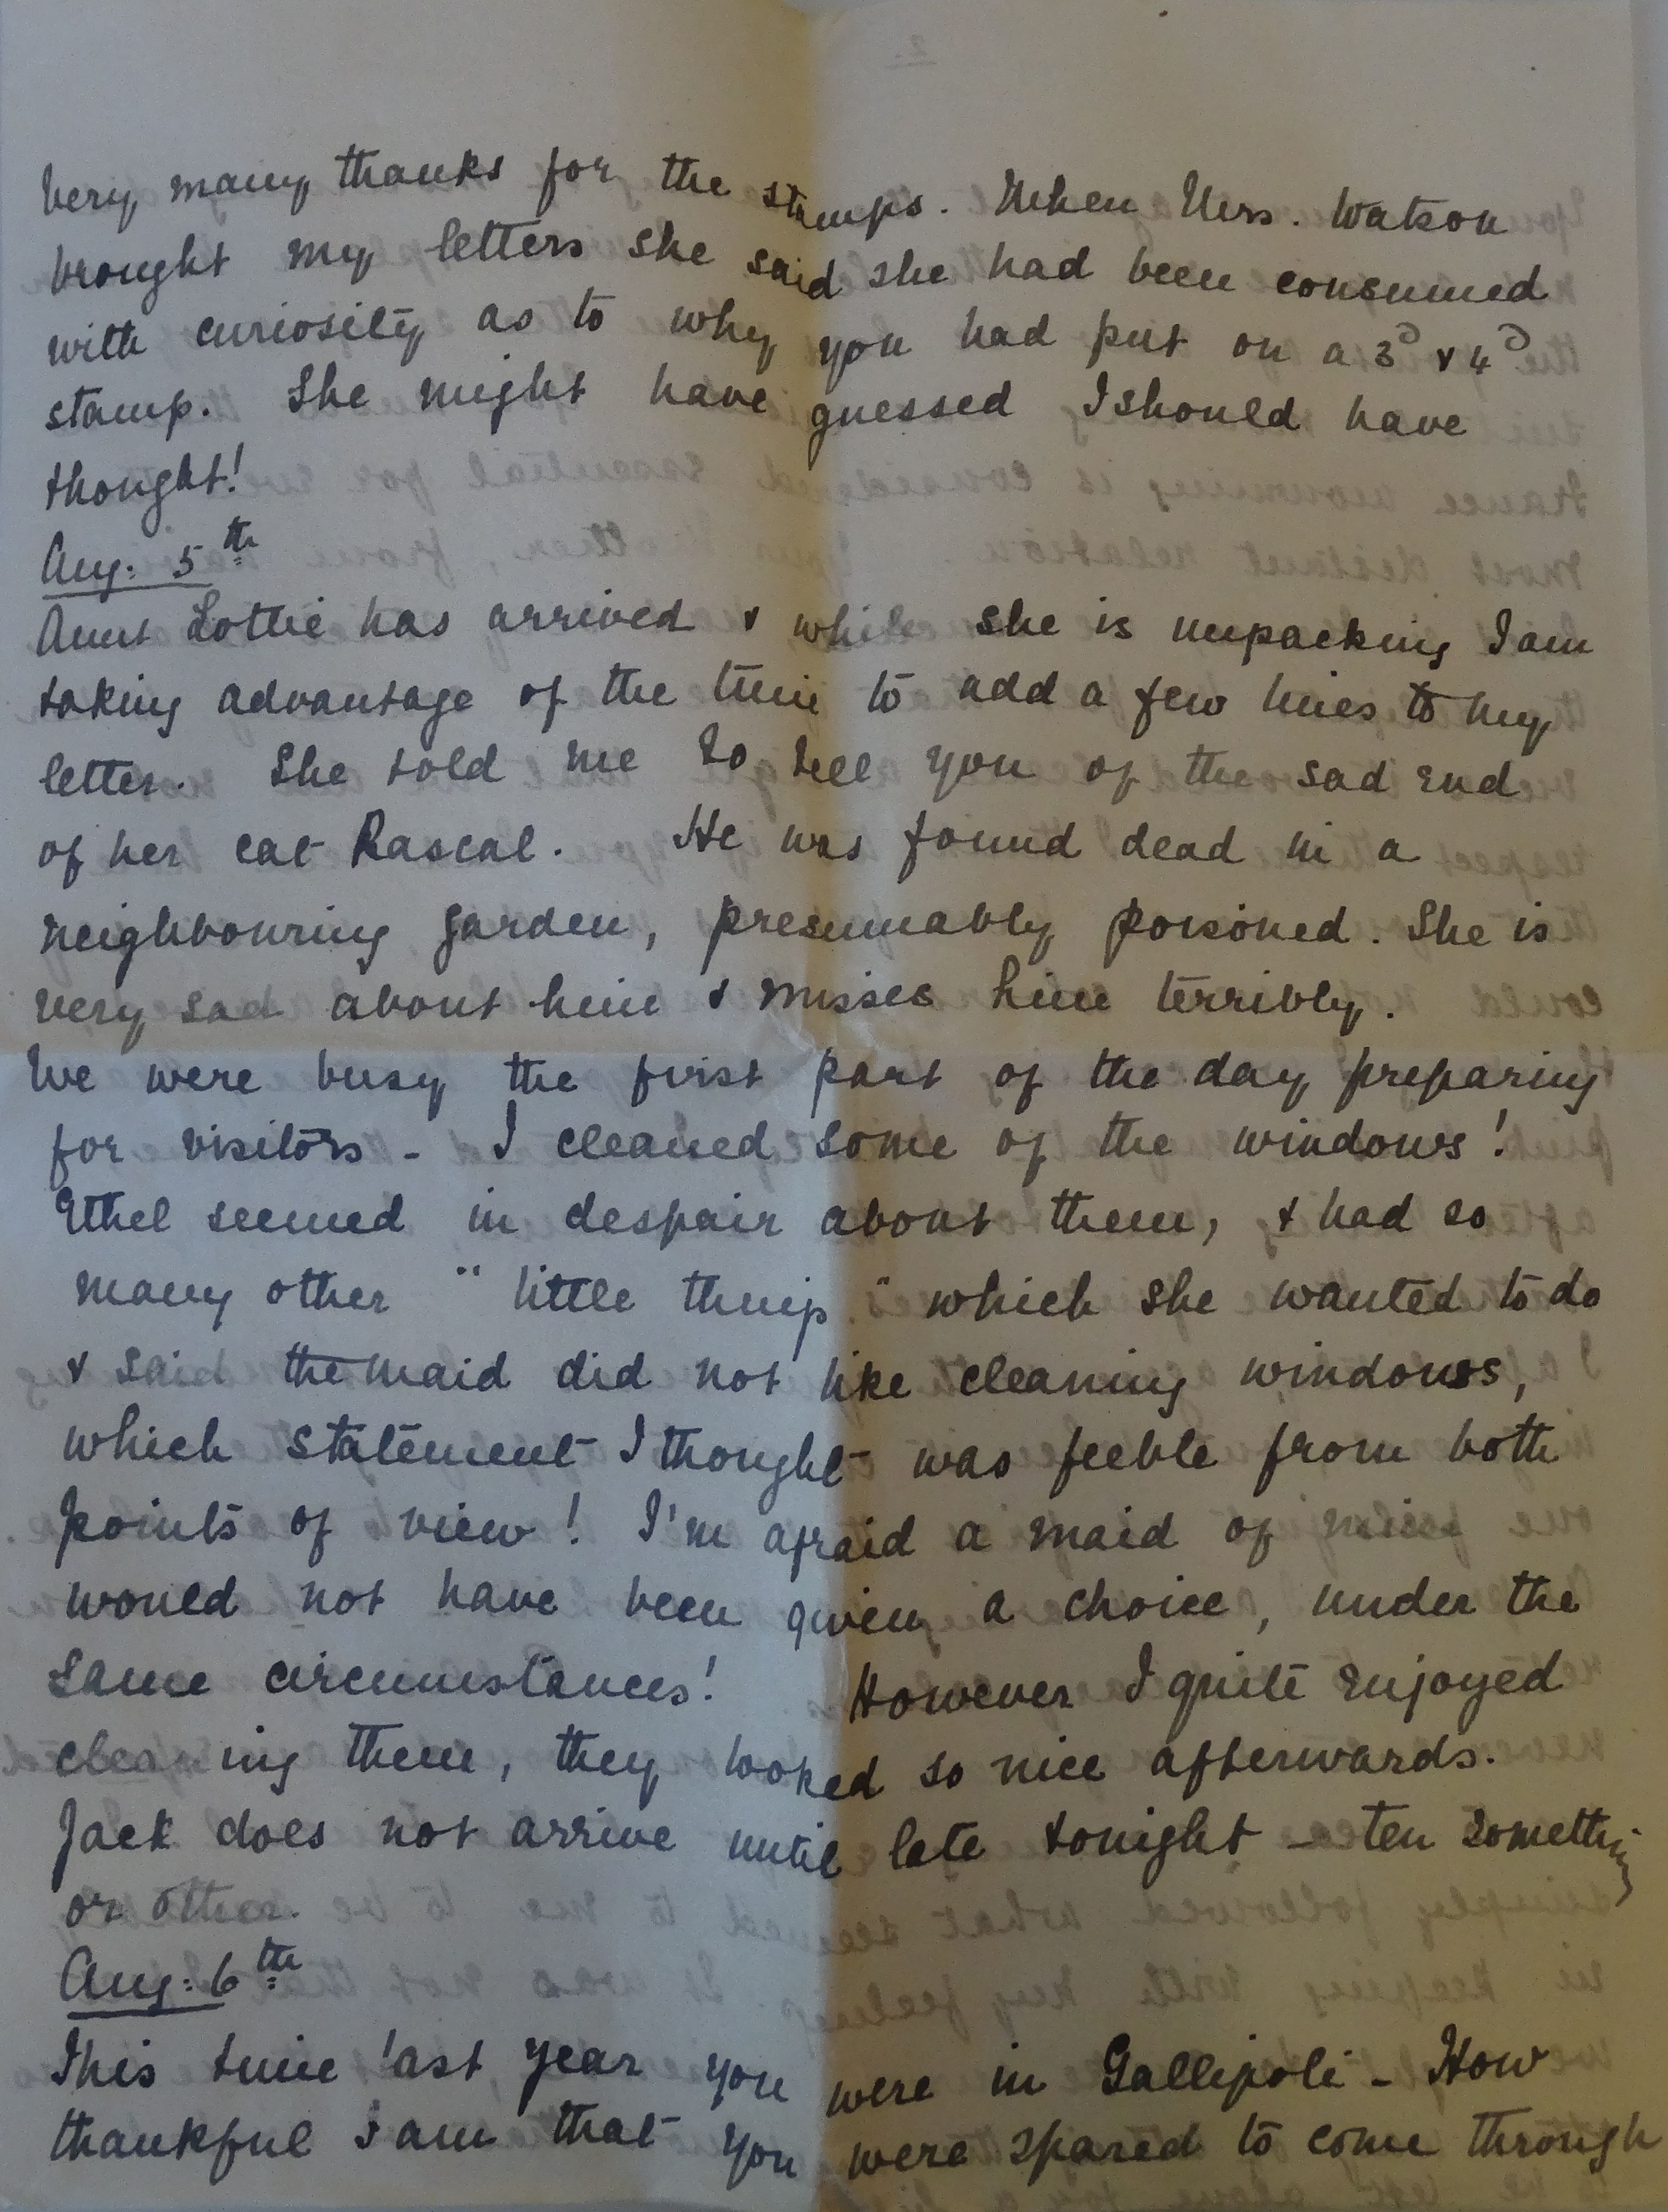 Very many thanks for the stamps. When Mrs. Watson
brought my letters she said she had been consumed
with curiosity as to why you had put on a 3ᴰ & 4ᴰ
stamp. She might have guessed I should have
thought!
Aug: 5th
Aunt Lottie has arrived & while she is unpacking I am
taking advantage of the time to add a few lines to my
letter. She told me to tell you of the sad end
of her cat Rascal. He was found dead in a
neighbouring garden, presumably poisoned. She is
very sad about him & misses him terribly.
We were busy the first part of the day preparing
for visitors - I cleaned some of the windows!
Ethel seemed in despair about them, & had so
many other "little things" which she wanted to do
& said the maid did not like cleaning windows,
which statement I thought was feeble from both
points of view! I'm afraid a maid of mine
would not have been given a choice, under the
same circumstances! However I quite enjoyed
cleaning them, they looked so nice afterwards.
Jack does not arrive until late tonight - ten something
or other.
Aug: 6th
This time last year you were in Gallipoli - How
thankful I am that you were spared to come through